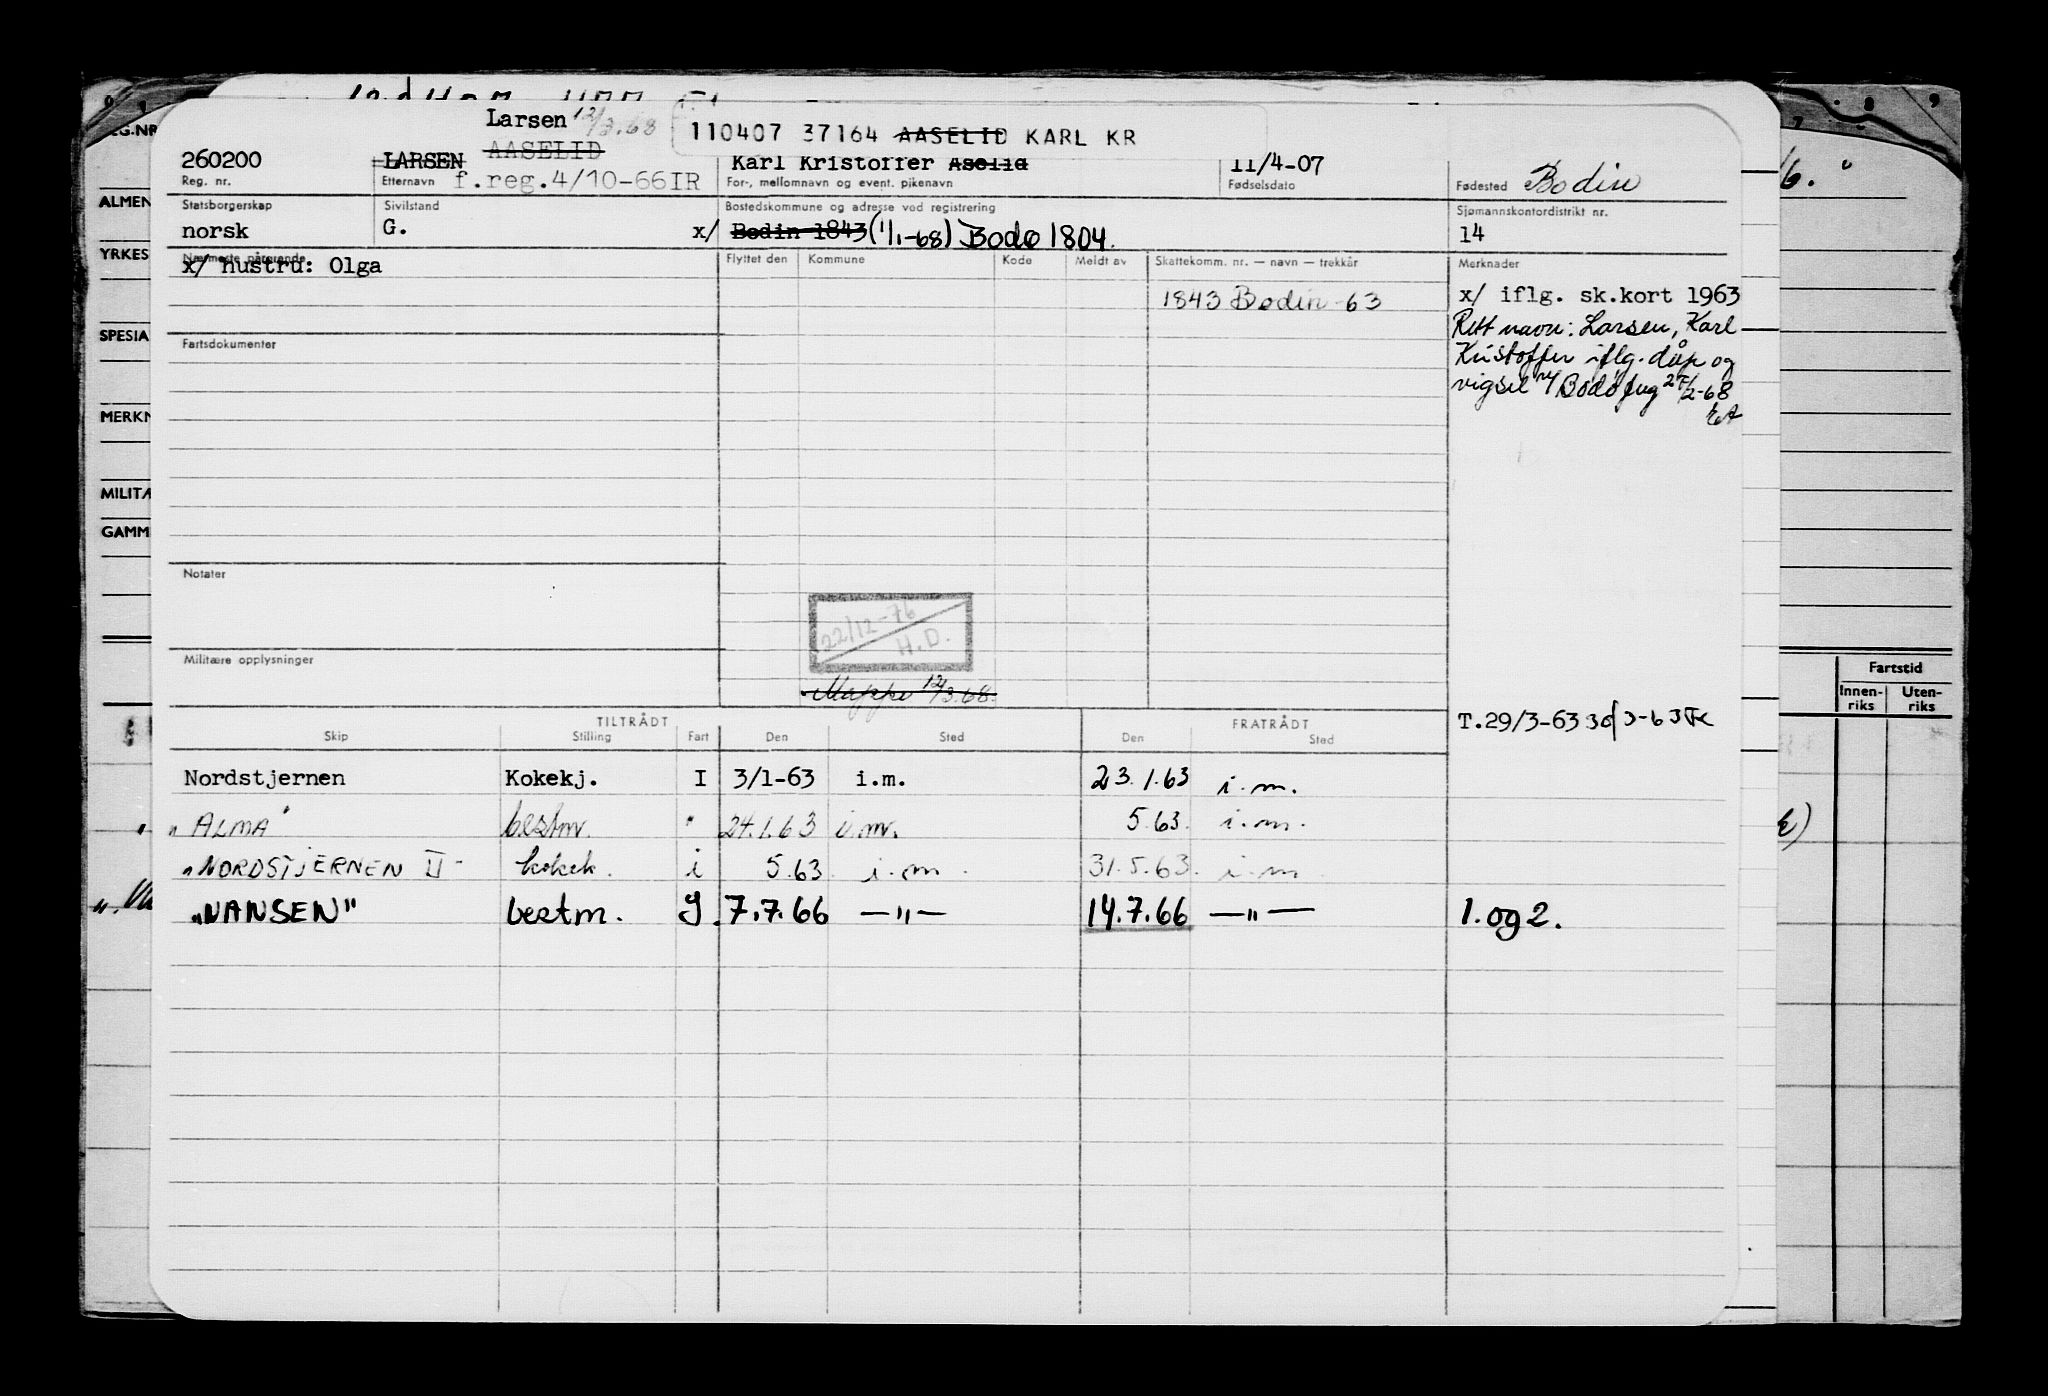 Larsen 12/3.68
110407 37164 AASELID KARL KR
260200 LARSEN AASELID Karl Kristoffer Aselid 11/4-07 Bodin
Reg. nr. Etternavn f.reg.4/10-66IR For-, mellomnavn og event. pikenavn Fødselsdato Fødested
Statsborgerskap Sivilstand Bostedskommune og adresse ved registrering Sjømannskontordistrikt nr.
norsk G. x/ Bodin 1843 (1/1-68) Bodø 1804. 14
Nærmeste pårørende Flyttet den Kommune Kode Meldt av Skattekomm. nr. — navn — trekkår Merknader
x/ hustru: Olga
1843 Bodin -63 x/ iflg. sk.kort 1963
Rett navn: Larsen, Karl
Kristoffer iflg. dåp og
vigsel
Fartsdokumenter
Notater
22/12-76
H.D.
Militære opplysninger
Mappe 12/3.68.
T.29/3-63
TILTRÅDT FRATRÅDT
Skip Stilling Fart Den Sted Den Sted
Nordstjernen Kokekj. I 3/1-63 i.m. 23.1.63 i.m.
"ALMA" bestm. " 24.1.63 i.m. 5.63. i.m.
"NORDSTJERNEN II" kokek. i 5.63 i.m. 31.5.63. i.m.
"NANSEN" bestm. I. 7.7.66 —"— 14.7.66 —"— 1. og 2.
ALMEN
YRKES
SPESIA
MERKN
MILITÆ
GAMM
Fartstid
Innen-riks Uten-riks